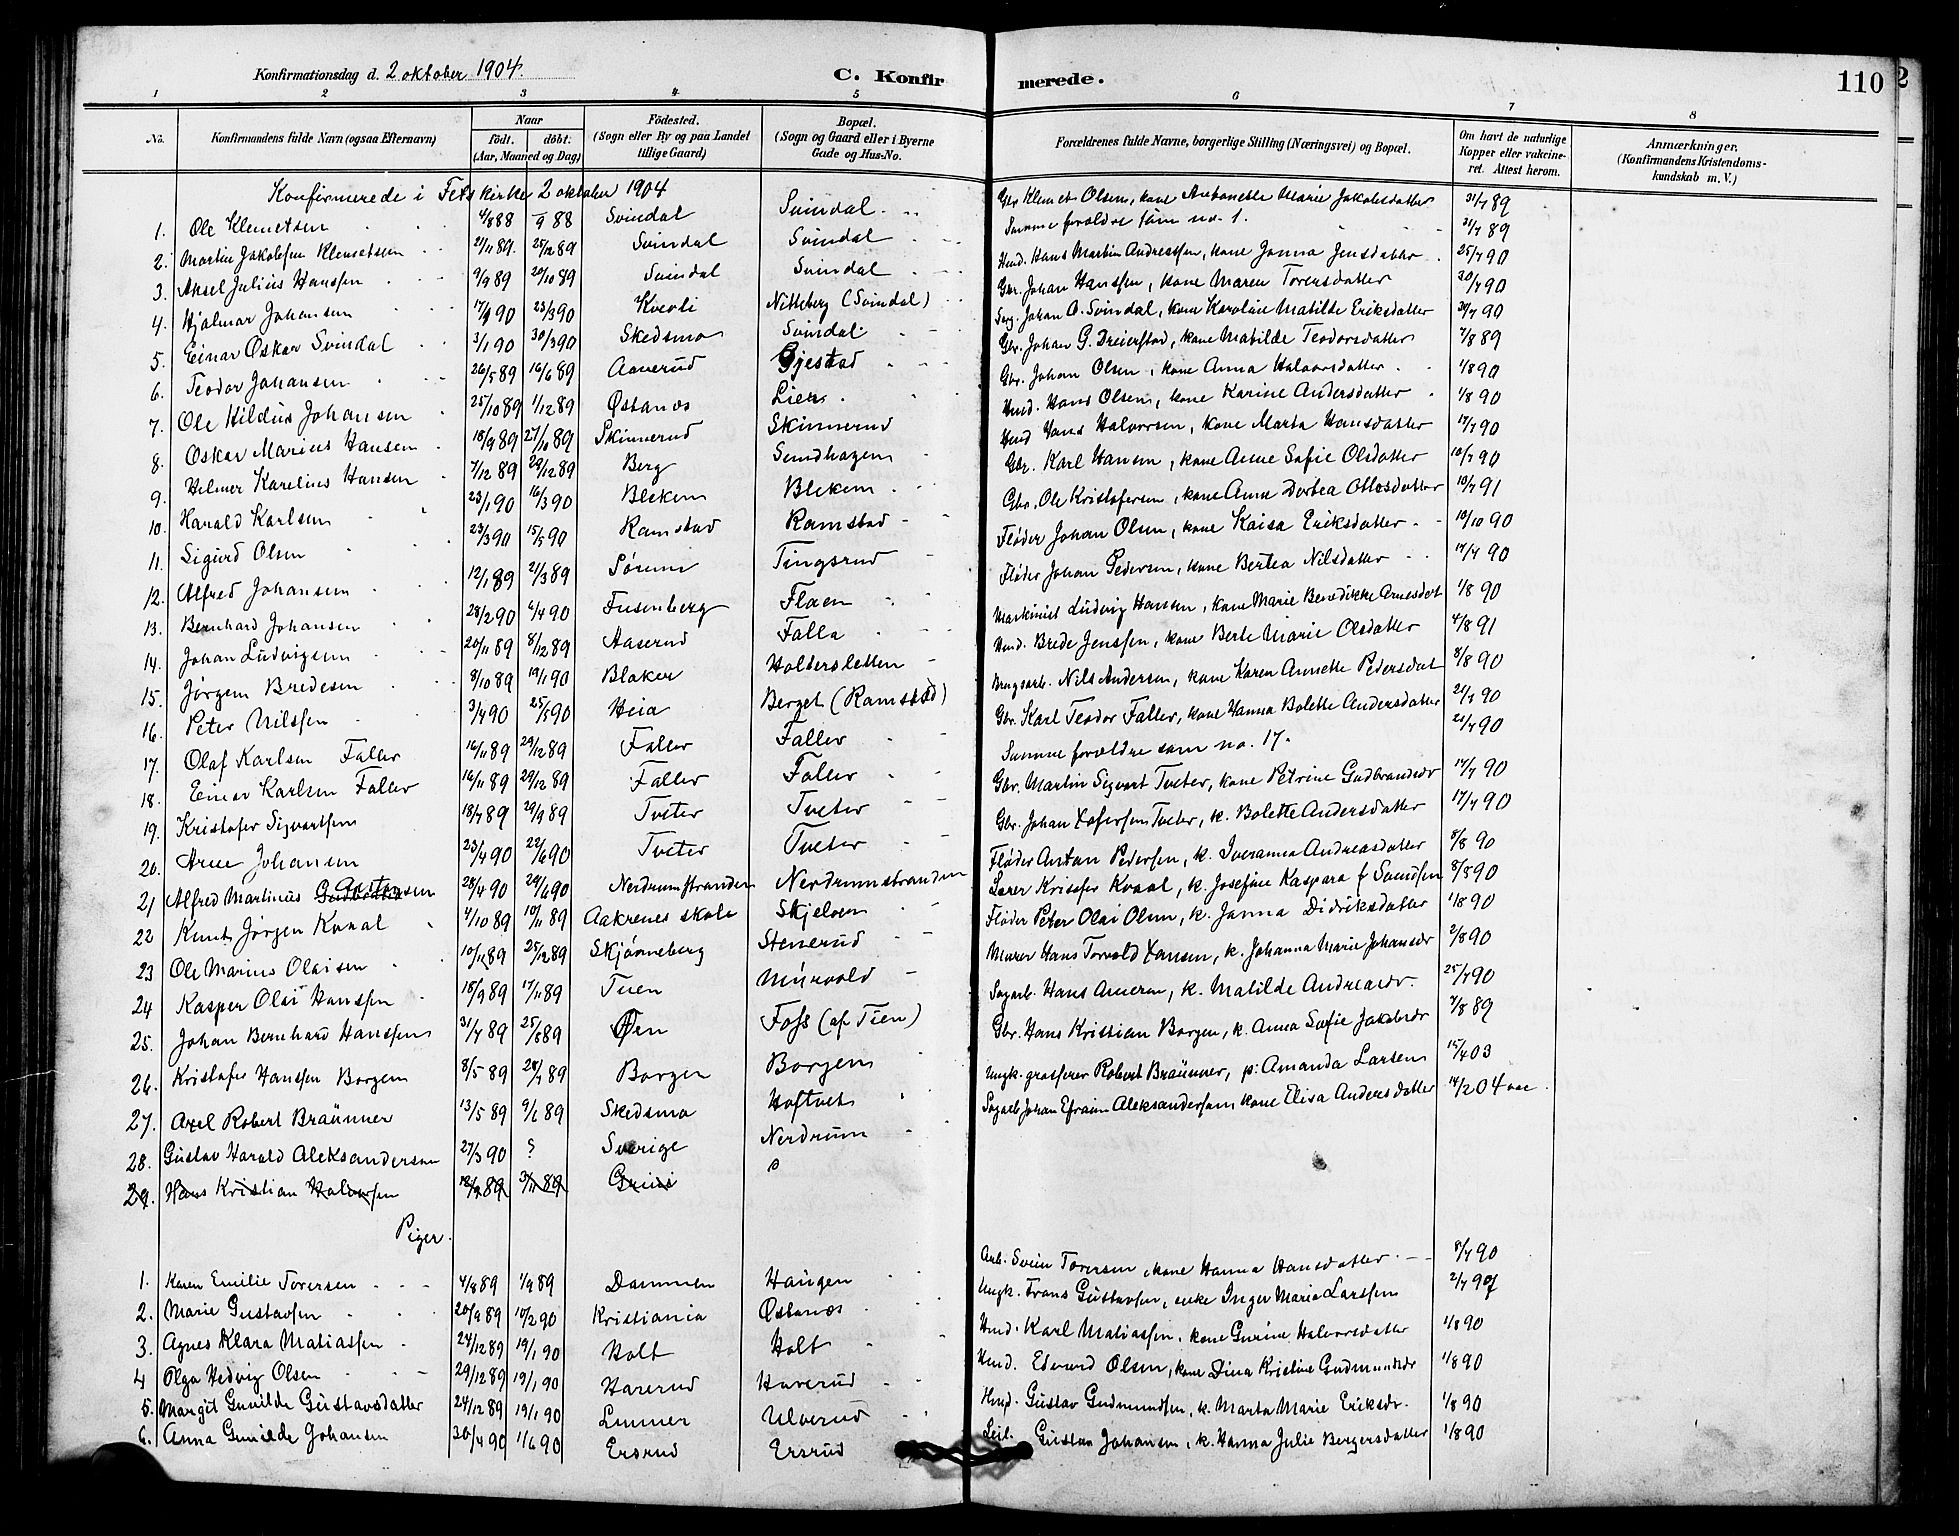 Konfirmationsdag d. 2 oktober 1904.
C. Konfirmerede.
110
1 2 3 4 5 6 7 8
No. Konfirmandens fulde Navn (ogsaa Efternavn) Naar født. døbt. (Aar, Maaned og Dag) Födested. (Sogn eller By og paa Landet tillige Gaard) Bopæl. (Sogn og Gaard eller i Byerne Gade og Hus-No. Forældrenes fulde Navne, borgerlige Stilling (Næringsvei) og Bopæl. Om havt de naturlige Kopper eller vakcineret. Attest herom. Anmærkninger. (Konfirmandens Kristendomskundskab m. V.)
Konfirmerede i Fets kirke 2 oktober 1904
1. Ole Klemetsen 4/8 88 /9 88 Svindal Svindal Gbr Klemet Olsen, kone Antonette Marie Jakobsdatter 31/7 89
2. Martin Jakobsen Klemetsen 21/11 89 25/12 89 Svindal Svindal Samme forældre som no. 1. 31/7 89
3. Aksel Julius Hanssen 9/9 89 20/10 89 Svindal Svindal Hmd. Hans Martin Andreassen, kone Janna Jensdatter 25/7 90
4. Hjalmar Johansen 17/1 90 23/3 90 Kveoli Nitteberg (Svindal) Gbr. Johan Hanssen, kone Maren Torersdatter 30/7 90
5. Einar Oskar Svindal 3/1 90 30/3 90 Skedsmo Svindal Johan O. Svindal, kone Karoline Matilde Eriksdatter 30/7 90
6. Teodor Johansen 26/5 89 16/6 89 Aaverud Gjestad Gbr. Johan G. Dreierstad, kone Matilde Teodorsdatter 7/8 89
7. Ole Hildus Johansen 25/10 89 1/12 89 Østanes Lien Gbr. Johan Olsen, kone Anna Halvorsdatter 1/8 90
8. Oskar Marius Hansen 18/9 89 27/10 89 Skinnerud Skinnerud Hmd. Hans Olsen, kone Karine Andersdatter 1/8 90
9. Helmer Karelius Hansen 7/12 89 29/12 89 Berg Sundhagen Hmd Hans Halvorsen, kone Marta Hansdatter 17/7 90
10. Harald Karlsen 23/1 90 16/3 90 Blekem Blekem Gbr. Karl Hansen, kone Anne Sofie Olsdatter 10/7 90
11. Sigurd Olsen 23/3 90 15/5 90 Ramstad Ramstad Gbr. Ole Kristofersen, kone Anne Dortea Ottosdatter 10/7 91
12. Alfred Johansen 12/1 89 21/3 89 Sørum Tingsrud Fløder Johan Olsen, kone Kaisa Eriksdatter 10/10 90
13. Bernhard Johansen 28/2 90 6/4 90 Fusenberg Flaen Fløder Johan Pedersen, kone Bertea Nilsdatter 17/7 90
14. Johan Ludvigsen 20/11 89 8/12 89 Aaserud Falla Maskinist Ludvig Hansen, kone Marie Benedikke Arnesdat 1/8 90
15. Jørgen Bredesen 8/10 89 19/1 90 Blaker Holtersletten Hmd. Brede Jenssen, kone Berte Marie Olsdatter 4/8 91
16. Peter Nilssen 3/4 90 25/5 90 Heia Berget (Ramstad) Brugsarb. Nils Andersen, kone Karen Annette Pedersdat 8/8 90
17. Olaf Karlsen Faller 16/11 89 29/12 89 Faller Faller Gbr. Karl Teodor Faller, kone Hanna Bolette Andersdatter 21/7 90
18. Einar Karlsen Faller 16/11 89 29/12 89 Faller Faller Samme forældre som no. 17. 21/7 90
19. Kristofer Sigvartsen 18/7 89 29/9 89 Tveter Tveter Gbr. Martin Sigvart Tveter, kone Petrine Gudbrandsdr 17/7 90
20. Arne Johansen 23/4 90 22/6 90 Tveter Tveter Gbr. Johan Xofersen Tveter, k. Bolette Andersdatter 17/7 90
21 Alfred Martinus Antonsen 28/4 90 29/6 90 Nerdrumstranden Nerdrumstranden Fløder Anton Pedersen, k. Iveranna Andreasdatter 8/8 90
22 Knut Jørgen Kvaal 4/10 89 10/11 89 Aakrenes skole Skjelven Lærer Krisfer Kvaal, k. Josefine Kaspara f. Svendsen 8/5 90
23 Ole Marius Olaisen 10/11 89 25/12 89 Skjønneberg Stenerud Fløder Peter Olai Olsen, k. Janna Didriksdatter 1/8 90
24 Kasper Olai Hanssen 18/9 89 17/11 89 Tuen Murvold Murer Hans Torvald Xansen, k. Johanna Marie Johansdr 2/8 90
25. Johan Bernhard Hanssen 31/7 89 25/8 89 Øen Foss (af Tien) Sagarb. Hans Arnesen, k. Matilde Andreasdr. 25/7 90
26. Kristofer Hanssen Borgen 8/5 89 28/7 89 Borgen Borgen Gbr. Hans Kristian Borgen, k. Anna Sofie Jakobsdr 7/8 89
27. Axel Robert Braünner 13/5 89 9/6 89 Skedsmo Hoftvet Ungk. grosserer Robert Braünner, p: Amanda Larsen 15/4 03
28. Gustav Harald Aleksandersen 27/3 90 ? Sverige Nerdrum Sagarb Johan Efraim Aleksandersen kone Elisa Andersdatter 14/2 04
29. Hans Kristian Halvorsen 18/9 89 3/11 89 Grini
Piger.
1. Karen Emilie Torersen 4/8 89 1/9 89 Dammen Haugen Arb. Svein Torersen, kone Hanna Hansdatter 8/7 90
2. Marie Gustavsen 20/9 89 10/2 90 Kristiania Østanes Ungk. Frans Gustavsen, enke Inger Marie Larssen 2/7 90
3. Agnes Klara Matiassen 24/12 89 19/1 90 Holt Holt Hmd. Karl Matiassen, kone Gurine Halvorsdatter 1/8 90
4 Olga Hedvig Olsen 29/12 89 19/1 90 Harerud Harerud Hmd. Edvard Olsen, kone Dina Kristine Gudmundsdr 1/8 90
5. Margit Gunilde Gustavsdatter 24/12 89 19/1 90 Lunner Ulverud Hmd. Gustav Gudmundsen, k. Marta Marie Eriksdr. 1/8 90
6. Anna Gunilde Johansen 30/4 90 1/6 90 Ersrud Ersrud Leil. Gustav Johansen, k. Hanna Julie Bergersdatter 1/8 90